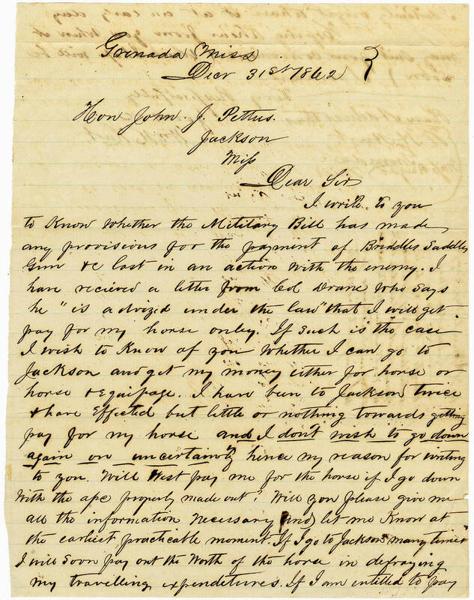 Grenada (Miss)
Decr 31st 1862
Hon John J. Pettus.
Jackson
Miss
Dear Sir
I write to you
to Know whether the Military Bill has made
any provisions for the payment of Briddles Saddles
Gun & c lost in an action with the enemy. I
have recieved a letter from Col Drane who says
he "is advized under the law" that I will get
pay for my horse only. If such is the case
I wish to Know of you whether I can go to
Jackson and get my money either for horse or
horse & Equipage. I have been to Jackson twice
& have Effected but little or nothing towards getting
pay for my horse and I don't wish to go down
again on uncertainty hence my reason for writing
to you. Will West pay me for the horse if I go down
with the ape properly made out" Will you please give me
all the information necessary and let me Know at
the earliest practicable moment. If I go to Jackson many times
I will soon pay out the worth of the horse in defraying
my travelling expenditures. If I am intitled to pay